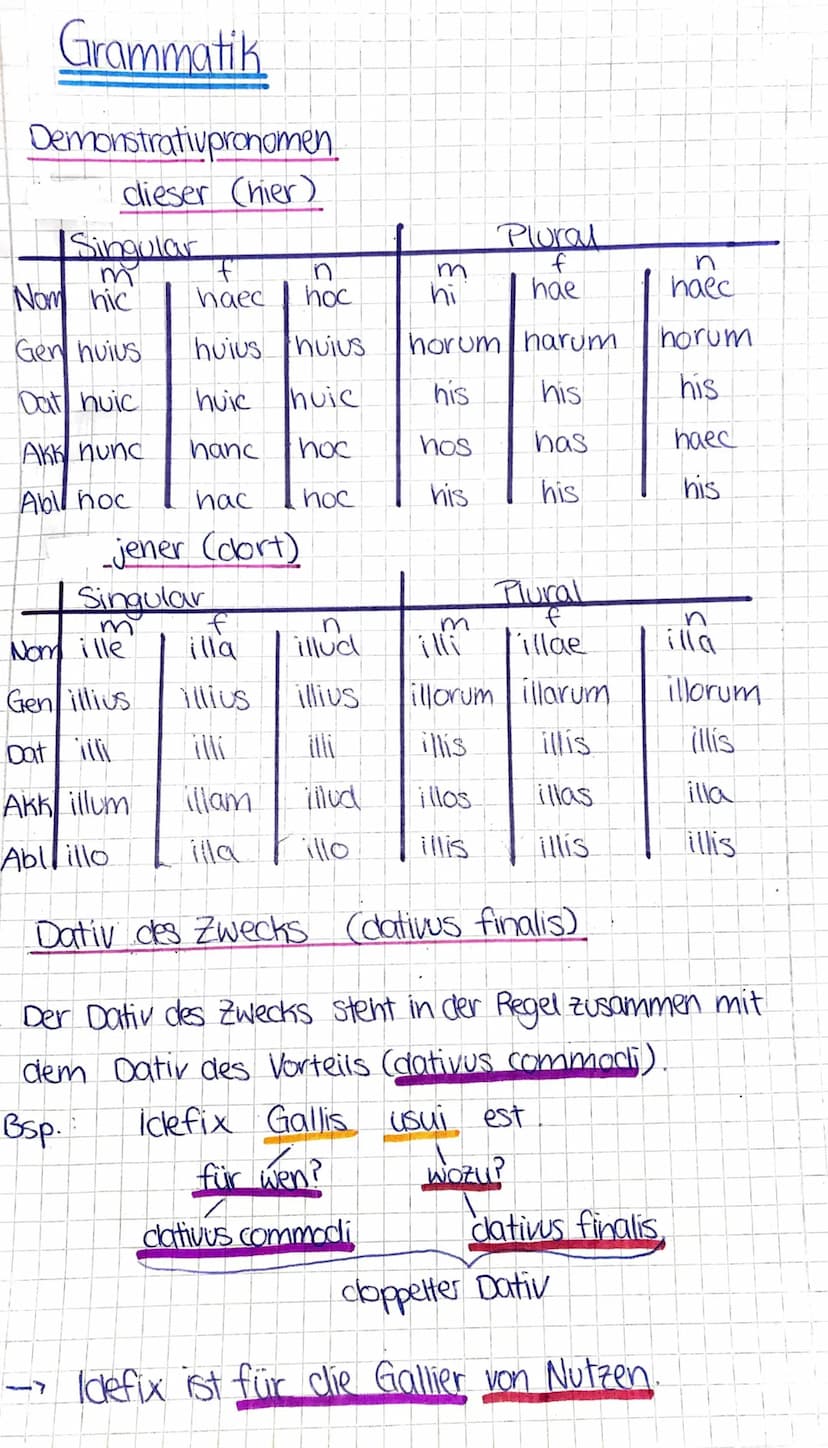 Grammatik
Demonstrativpronomen
dieser (hier)
Singular Plural
m f n m f n
Nom hic haec hoc hi hae haec
Gen huius huius huius horum harum horum
Dat huic huic huic his his his
Akk hunc hanc hoc hos has haec
Abl hoc hac hoc his his his
jener (dort)
Singular Plural
m f n m f n
Nom ille illa illud illi illae illa
Gen illius illius illius illorum illarum illorum
Dat illi illi illi illis illis illis
Akk illum illam illud illos illas illa
Abl illo illa illo illis illis illis
Dativ des Zwecks (dativus finalis)
Der Dativ des Zwecks steht in der Regel zusammen mit
dem Dativ des Vorteils (dativus commodi).
Bsp.: Idefix Gallis usui est.
für wen? wozu?
dativus commodi dativus finalis
doppelter Dativ
→ Idefix ist für die Gallier von Nutzen.